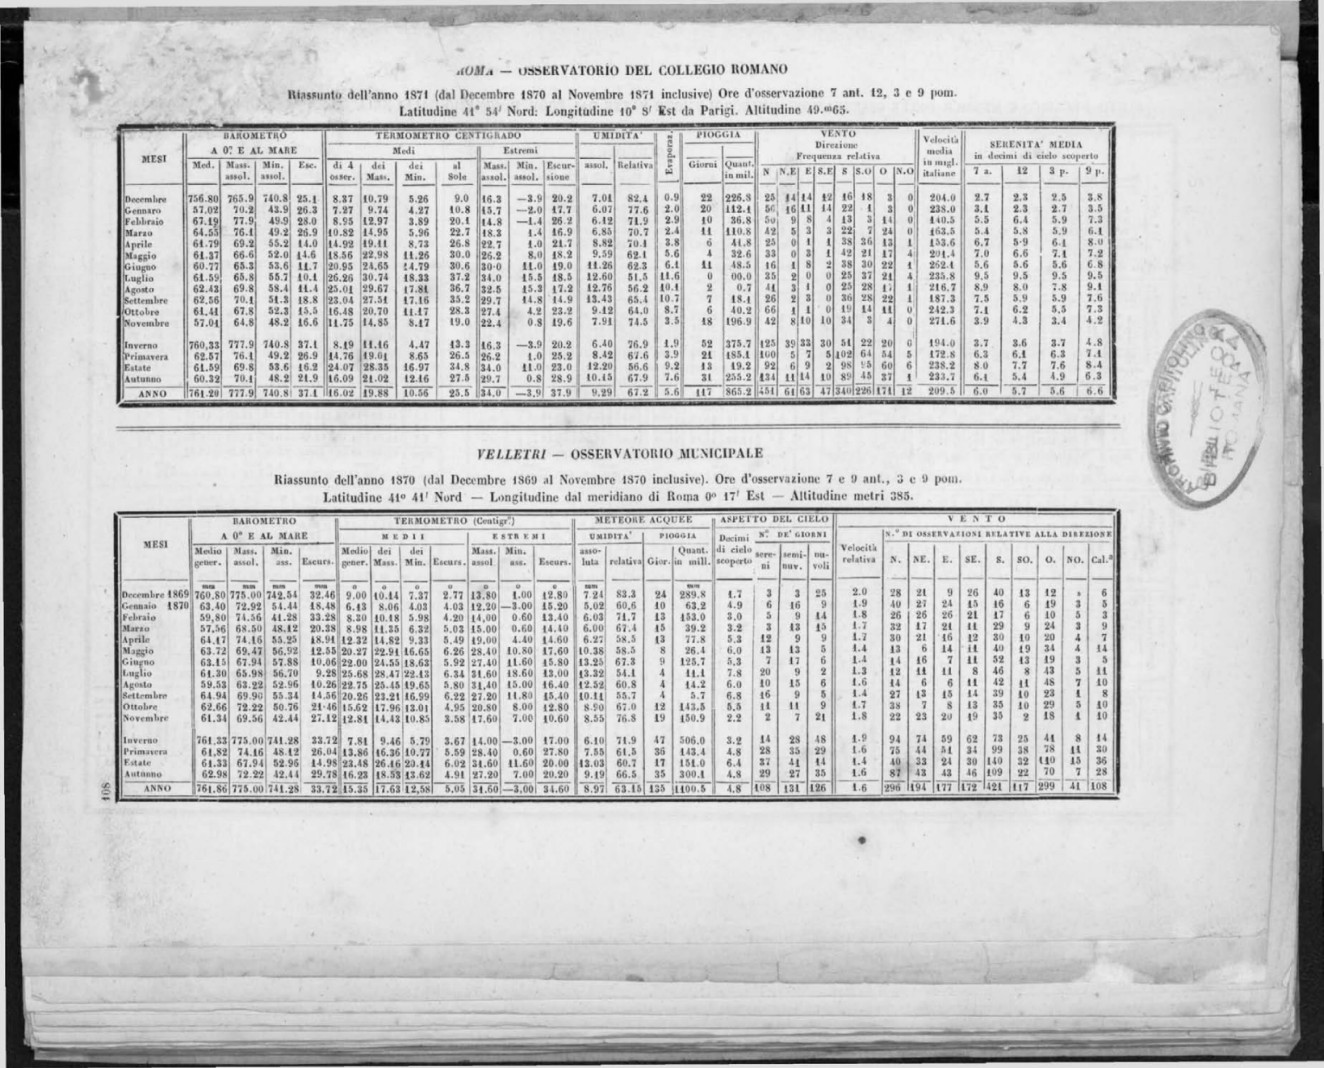 ROMA — OSSERVATORIO DEL COLLEGIO ROMANO
Riassunto dell'anno 1871 (dal Decembre 1870 al Novembre 1871 inclusive) Ore d'osservazione 7 ant. 12, 3 e 9 pom.
Latitudine 41° 54′ Nord: Longitudine 10° 8′ Est da Parigi. Altitudine 49.m65.
MESI BAROMETRO A 0.° E AL MARE TERMOMETRO CENTIGRADO UMIDITA' Evaporaz. PIOGGIA VENTO Direzione Frequenza relativa Velocità media in migl. italiane SERENITA' MEDIA in decimi di cielo scoperto
Medi Estremi
Med. Mass. assol. Min. assol. Esc. di 4 osser. dei Mass. dei Min. al Sole Mass. assol. Min. assol. Escursione assol. Relativa Giorni Quant. in mil. N N.E E S.E S S.O O N.O 7 a. 12 3 p. 9 p.
Decembre 756.80 765.9 740.8 25.1 8.37 10.79 5.26 9.0 16.3 —3.9 20.2 7.01 82.4 0.9 22 226.8 25 14 14 12 16 18 3 0 204.0 2.7 2.3 2.5 3.8
Gennaro 57.02 70.2 43.9 26.3 7.27 9.74 4.27 10.8 15.7 —2.0 17.7 6.07 77.6 2.0 20 112.1 50 16 11 14 22 1 3 0 238.0 3.1 2.3 2.7 3.5
Febbraio 67.19 77.9 49.9 28.0 8.95 12.97 3.89 20.1 14.8 —1.4 26.2 6.12 71.9 2.9 10 36.8 50 9 8 4 13 3 14 0 140.5 5.5 6.4 5.9 7.3
Marzo 64.55 76.1 49.2 26.9 10.82 14.95 5.96 22.7 18.3 1.4 16.9 6.85 70.7 2.4 11 110.8 42 5 3 3 22 7 24 0 163.5 5.4 5.8 5.9 6.1
Aprile 61.79 69.2 55.2 14.0 14.92 19.11 8.73 26.8 22.7 1.0 21.7 8.82 70.1 3.8 6 41.8 25 0 1 1 38 36 13 1 153.6 6.7 5.9 6.1 8.0
Maggio 61.37 66.6 52.0 14.6 18.56 22.98 11.26 30.0 26.2 8.0 18.2 9.59 62.1 5.6 4 32.6 33 0 3 1 42 21 17 4 201.4 7.0 6.6 7.1 7.2
Giugno 60.77 65.3 53.6 11.7 20.95 24.65 14.79 30.6 30.0 11.0 19.0 11.26 62.3 6.1 11 48.5 16 1 8 2 38 30 22 1 262.1 5.6 5.6 5.6 6.8
Luglio 61.59 65.8 55.7 10.1 26.26 30.74 18.33 37.2 34.0 15.5 18.5 12.60 51.5 11.6 0 00.0 35 2 0 0 25 37 21 4 235.8 9.5 9.5 9.5 9.5
Agosto 62.43 69.8 58.4 11.4 25.01 29.67 17.81 36.7 32.5 15.3 17.2 12.76 56.2 10.1 2 0.7 41 3 1 0 25 28 17 1 216.7 8.9 8.0 7.8 9.1
Settembre 62.56 70.1 51.3 18.8 23.04 27.51 17.16 35.2 29.7 14.8 14.9 13.43 65.4 10.7 7 18.1 26 2 3 0 36 28 22 1 187.3 7.5 5.9 5.9 7.6
Ottobre 61.41 67.8 52.3 15.5 16.48 20.70 11.17 28.3 27.4 4.2 23.2 9.12 64.0 8.7 6 40.2 66 1 1 0 19 14 11 0 242.3 7.1 6.2 5.5 7.3
Novembre 57.01 64.8 48.2 16.6 11.75 14.85 8.17 19.0 22.4 0.8 19.6 7.91 74.5 3.5 18 196.9 42 8 10 10 34 3 4 0 271.6 3.9 4.3 3.4 4.2
Inverno 760,33 777.9 740.8 37.1 8.19 11.16 4.47 13.3 16.3 —3.9 20.2 6.40 76.9 1.9 52 375.7 125 39 33 30 51 22 20 0 194.0 3.7 3.6 3.7 4.8
Primavera 62.57 76.1 49.2 26.9 14.76 19.01 8.65 26.5 26.2 1.0 25.2 8.42 67.6 3.9 21 185.1 100 5 7 5 102 64 54 5 172.8 6.3 6.1 6.3 7.1
Estate 61.59 69.8 53.6 16.2 24.07 28.35 16.97 34.8 34.0 11.0 23.0 12.20 56.6 9.2 13 19.2 92 6 9 2 98 95 60 6 238.2 8.0 7.7 7.6 8.4
Autunno 60.32 70.1 48.2 21.9 16.09 21.02 12.16 27.5 29.7 0.8 28.9 10.15 67.9 7.6 31 255.2 134 11 14 10 89 45 37 1 233.7 6.1 5.4 4.9 6.3
ANNO 761.20 777.9 740.8 37.1 16.02 19.88 10.56 25.5 34.0 —3.9 37.9 9.29 67.2 5.6 117 865.2 451 61 63 47 340 226 171 12 209.5 6.0 5.7 5.6 6.6
VELLETRI — OSSERVATORIO MUNICIPALE
Riassunto dell'anno 1870 (dal Decembre 1869 al Novembre 1870 inclusive). Ore d'osservazione 7 e 9 ant., 3 e 9 pom.
Latitudine 41° 41′ Nord — Longitudine dal meridiano di Roma 0° 17′ Est — Altitudine metri 385.
MESI BAROMETRO A 0.° E AL MARE TERMOMETRO (Centigr.°) METEORE ACQUEE ASPETTO DEL CIELO VENTO
MEDII ESTREMI UMIDITA' PIOGGIA Decimi di cielo scoperto N.° DE' GIORNI Velocità relativa N.° DI OSSERVAZIONI RELATIVE ALLA DIREZIONE
Medio gener. Mass. assol. Min. ass. Escurs. Medio gener. dei Mass. dei Min. Escurs. Mass. assol Min. ass. Escurs. assoluta relativa Gior. Quant. in mill. sereni seminuv. nuvoli N. NE. E. SE. S. SO. O. NO. Cal.a
Decembre 1869 760.80 775.00 742.54 32.46 9.00 10.14 7.37 2.77 13.80 1.00 12.80 7.24 83.3 24 289.8 1.7 3 3 25 2.0 28 21 9 26 40 13 12 » 6
Gennaio 1870 63.40 72.92 54.44 18.48 6.13 8.06 4.03 4.03 12.20 —3.00 15.20 5.02 60.6 10 63.2 4.9 6 16 9 1.9 40 27 24 15 16 6 19 3 5
Febraio 59.80 74.56 41.28 33.28 8.30 10.18 5.98 4.20 14.00 0.60 13.40 6.03 71.7 13 153.0 3.0 5 9 14 1.8 26 26 26 21 17 6 10 5 3
Marzo 57.56 68.50 48.12 20.38 8.98 11.35 6.32 5.03 15.00 0.60 14.40 6.00 67.4 15 39.2 3.2 3 13 15 1.7 32 17 21 11 29 9 24 3 9
Aprile 64.17 74.16 55.25 18.91 12.32 14.82 9.33 5.49 19.00 4.40 14.60 6.27 58.5 13 77.8 5.3 12 9 9 1.7 30 21 16 12 30 10 20 4 7
Maggio 63.72 69.47 56.92 12.55 20.27 22.91 16.65 6.26 28.40 10.80 17.60 10.38 58.5 8 26.4 6.0 13 13 5 1.4 13 6 14 11 40 19 34 4 14
Giugno 63.15 67.94 57.88 10.06 22.00 24.55 18.63 5.92 27.40 11.60 15.80 13.25 67.3 9 125.7 5.3 7 17 6 1.4 14 16 7 11 52 13 19 3 5
Luglio 61.30 65.98 56.70 9.28 25.68 28.47 22.13 6.34 31.60 18.60 13.00 13.32 54.1 4 11.1 7.8 20 9 2 1.3 12 11 11 8 46 8 43 5 11
Agosto 59.53 63.22 52.96 10.26 22.75 25.45 19.65 5.80 31.40 15.00 16.40 12.52 60.8 4 14.2 6.0 10 15 6 1.6 14 6 6 11 42 11 48 7 10
Settembre 64.94 69.90 55.34 14.56 20.26 23.21 16.99 6.22 27.20 11.80 15.40 10.11 55.7 4 5.7 6.8 16 9 5 1.4 27 13 15 14 39 10 23 1 8
Ottobre 62.66 72.22 50.76 21.46 15.62 17.96 13.01 4.95 20.80 8.00 12.80 8.90 67.0 12 143.5 5.5 11 11 9 1.7 38 7 8 13 35 10 29 5 10
Novembre 61.34 69.56 42.44 27.12 12.81 14.43 10.85 3.58 17.60 7.00 10.60 8.55 76.8 19 150.9 2.2 2 7 21 1.8 22 23 20 19 35 2 18 1 10
Inverno 761.33 775.00 741.28 33.72 7.81 9.46 5.79 3.67 14.00 —3.00 17.00 6.10 71.9 47 506.0 3.2 14 28 48 1.9 94 74 59 62 73 25 41 8 14
Primavera 61.82 74.16 48.12 26.04 13.86 16.36 10.77 5.59 28.40 0.60 27.80 7.55 61.5 36 143.4 4.8 28 35 29 1.6 75 44 51 34 99 38 78 11 30
Estate 61.33 67.94 52.96 14.98 23.48 26.16 20.14 6.02 31.60 11.60 20.00 13.03 60.7 17 151.0 6.4 37 41 14 1.4 40 33 24 30 140 32 110 15 36
Autunno 62.98 72.22 42.44 29.78 16.23 18.53 13.62 4.91 27.20 7.00 20.20 9.19 66.5 35 300.1 4.8 29 27 35 1.6 87 43 43 46 109 22 70 7 28
ANNO 761.86 775.00 741.28 33.72 15.35 17.63 12.58 5.05 31.60 —3.00 34.60 8.97 63.15 135 1100.5 4.8 108 131 126 1.6 296 194 177 172 421 117 299 41 108
108
ARCHIVIO CAPITOLINO
BIBLIOTECA
ROMANA